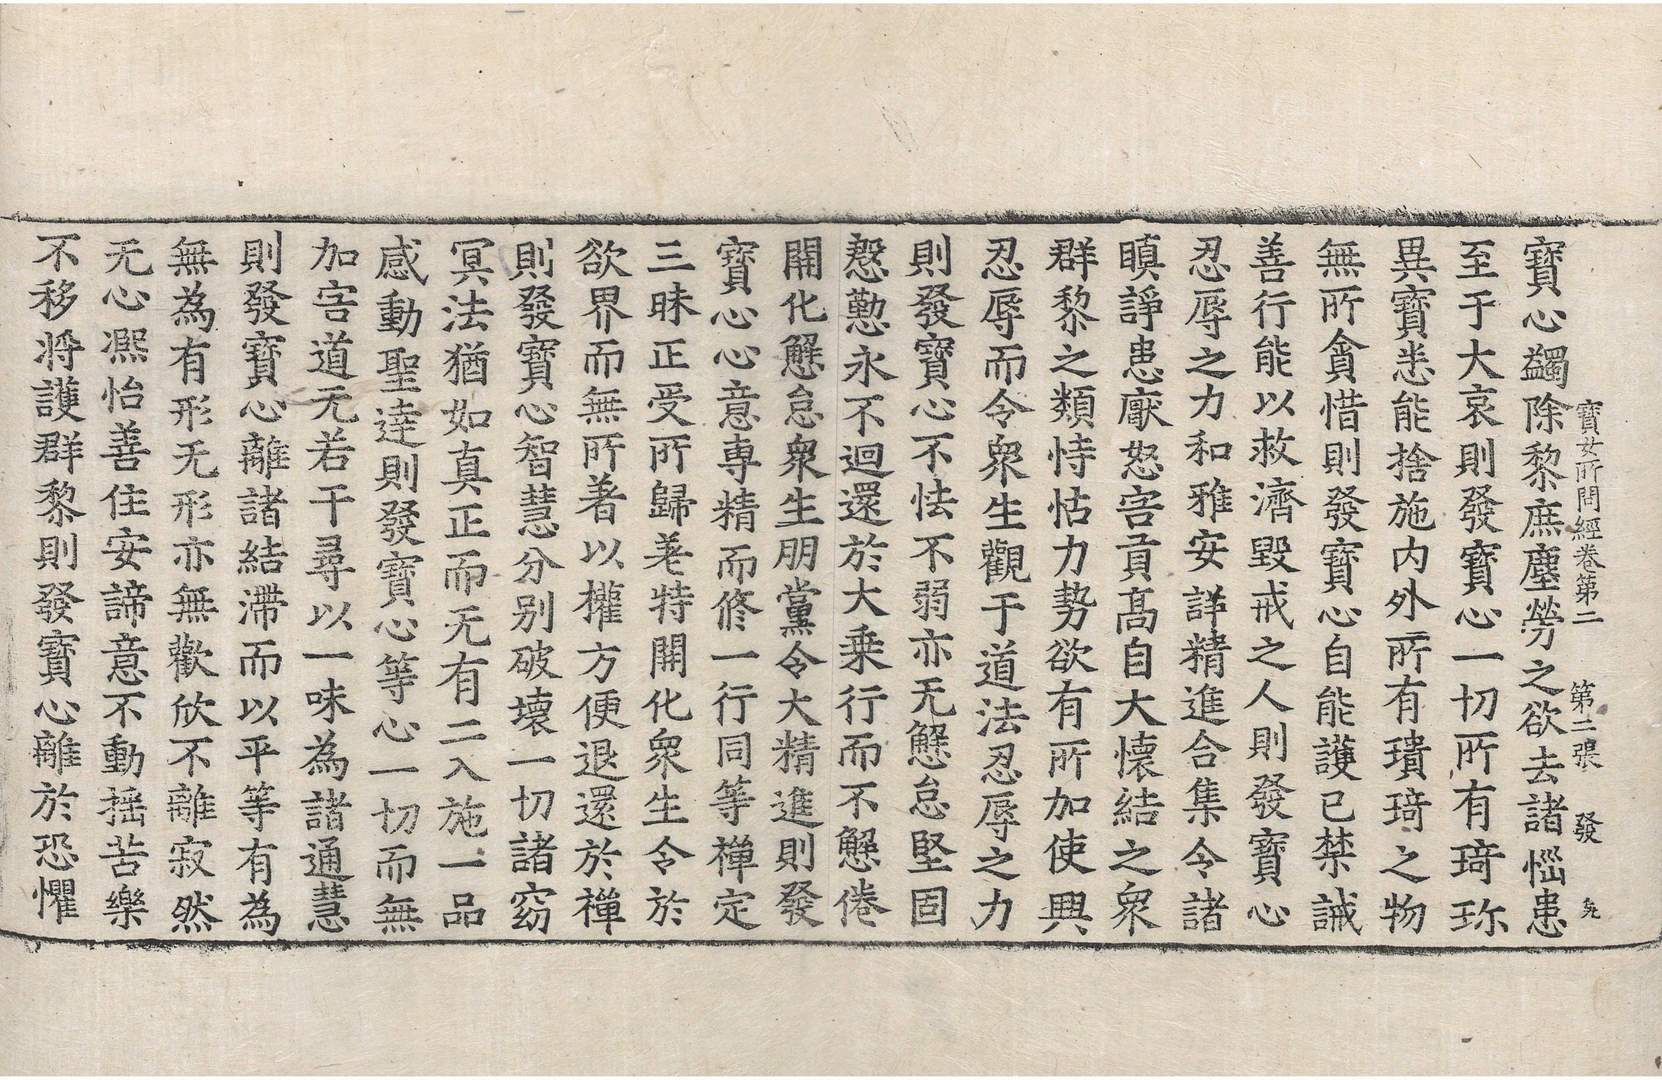 寶女所問經卷第二　第二張　發
寶心蠲除黎庶塵勞之欲去諸惱患
至于大哀則發寶心一切所有琦珎
異寶悉能捨施内外所有璝琦之物
無所貪惜則發寶心自能護已禁誡
善行能以救濟毀戒之人則發寶心
忍辱之力和雅安詳精進合集令諸
瞋諍恚厭怒害貢高自大懷結之衆
群黎之類恃怙力勢欲有所加使興
忍辱而令衆生觀于道法忍辱之力
則發寶心不怯不弱亦无懈怠堅固
慇懃永不迴還於大乗行而不懈倦
開化懈怠衆生朋黨令大精進則發
寶心心意専精而修一行同等禪定
三昧正受所歸䒳特開化衆生令於
欲界而無所著以權方便退還於禪
則發寶心智慧分別破壞一切諸窈
冥法猶如真正而无有二入施一品
感動聖達則發寶心等心一切而無
加害道无若干尋以一味為諸通慧
則發寶心離諸結滯而以平等有為
無為有形无形亦無歡欣不離寂然
无心凞怡善住安諦意不動揺苦樂
不移将護群黎則發寶心離於恐懼